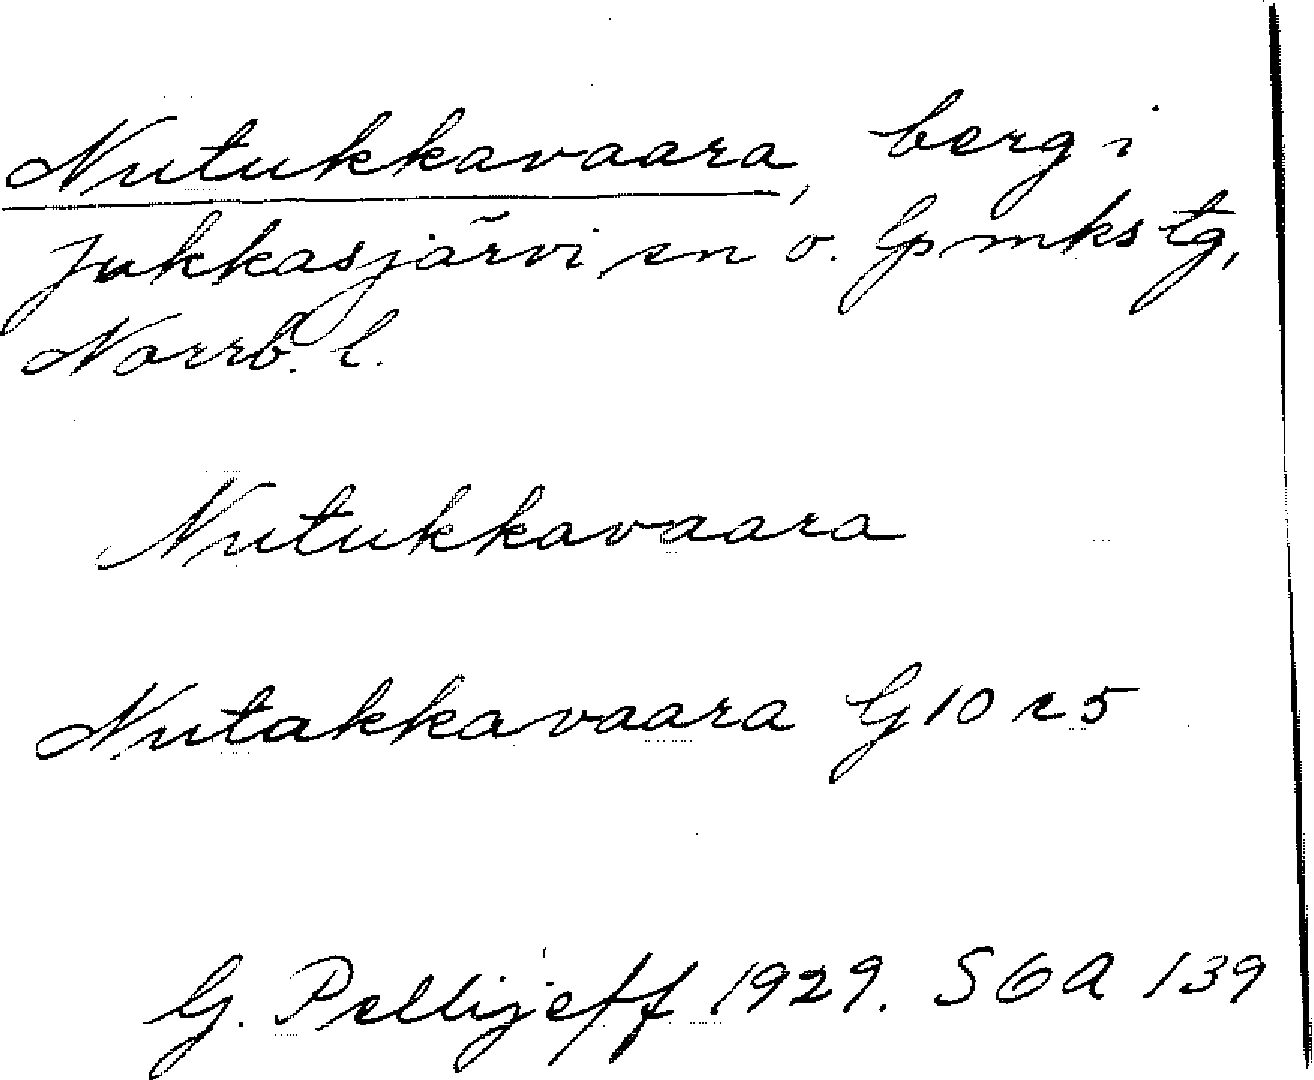 Nutukkavaara, berg i
Jukkasjärvi sn o. lpmkstg,
Norrb. l.
Nutukkavaara
Nutakkavaara G 10 r 5
G. Pellijeff 1929. SOA 139